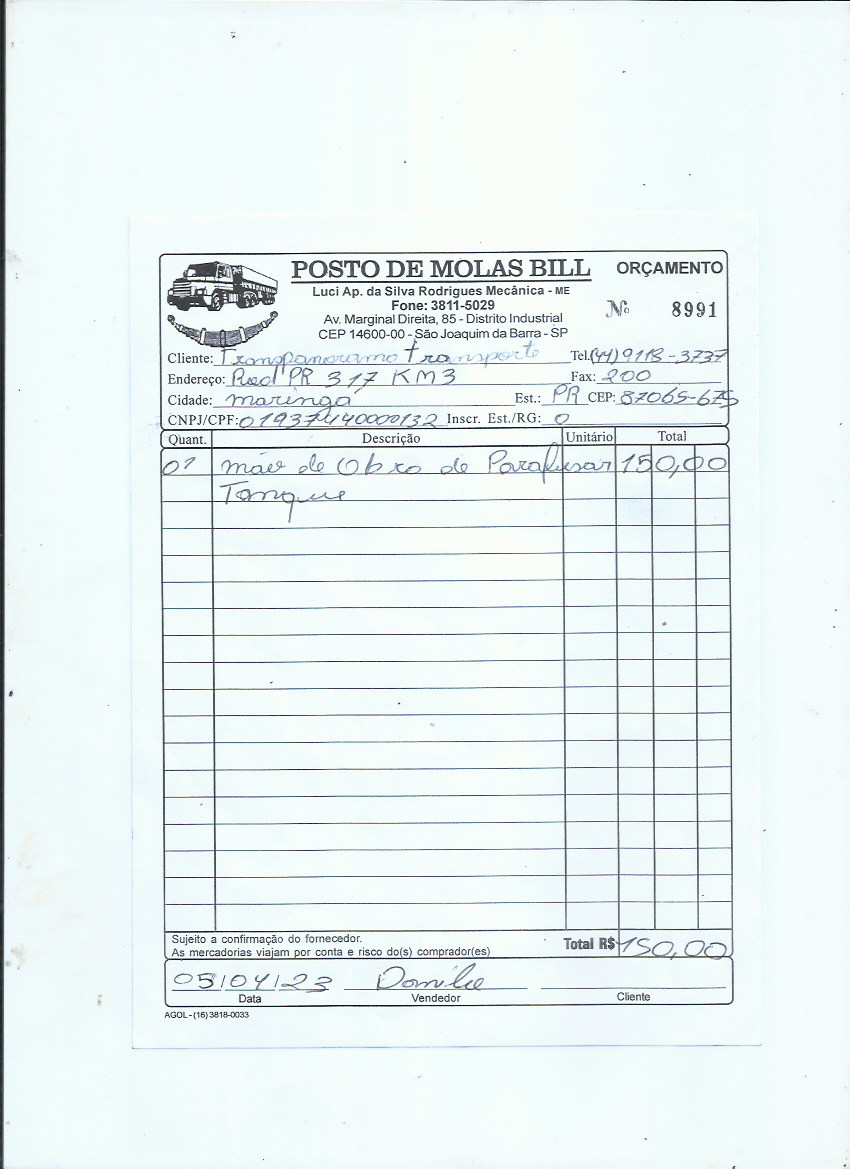 POSTO DE MOLAS BILL ORÇAMENTO
Luci Ap. da Silva Rodrigues Mecânica - ME
Fone: 3811-5029
Nº 8991
Av. Marginal Direita, 85 - Distrito Industrial
CEP 14600-00 - São Joaquim da Barra - SP
Cliente: Transpanorama Transporte Tel.(44)9118-3737
Endereço: Rod PR 317 KM3 Fax: 200
Cidade: maringá Est.: PR CEP: 87065-675
CNPJ/CPF: Inscr. Est./RG: 0
Quant. Descrição Unitário Total
01 mão de Obra de Parafusar 150,00
Tanque
Sujeito a confirmação do fornecedor.
As mercadorias viajam por conta e risco do(s) comprador(es)
Total R$ 150,00
05/04/23 Danilo
Data Vendedor Cliente
AGOL - (16) 3818-0033